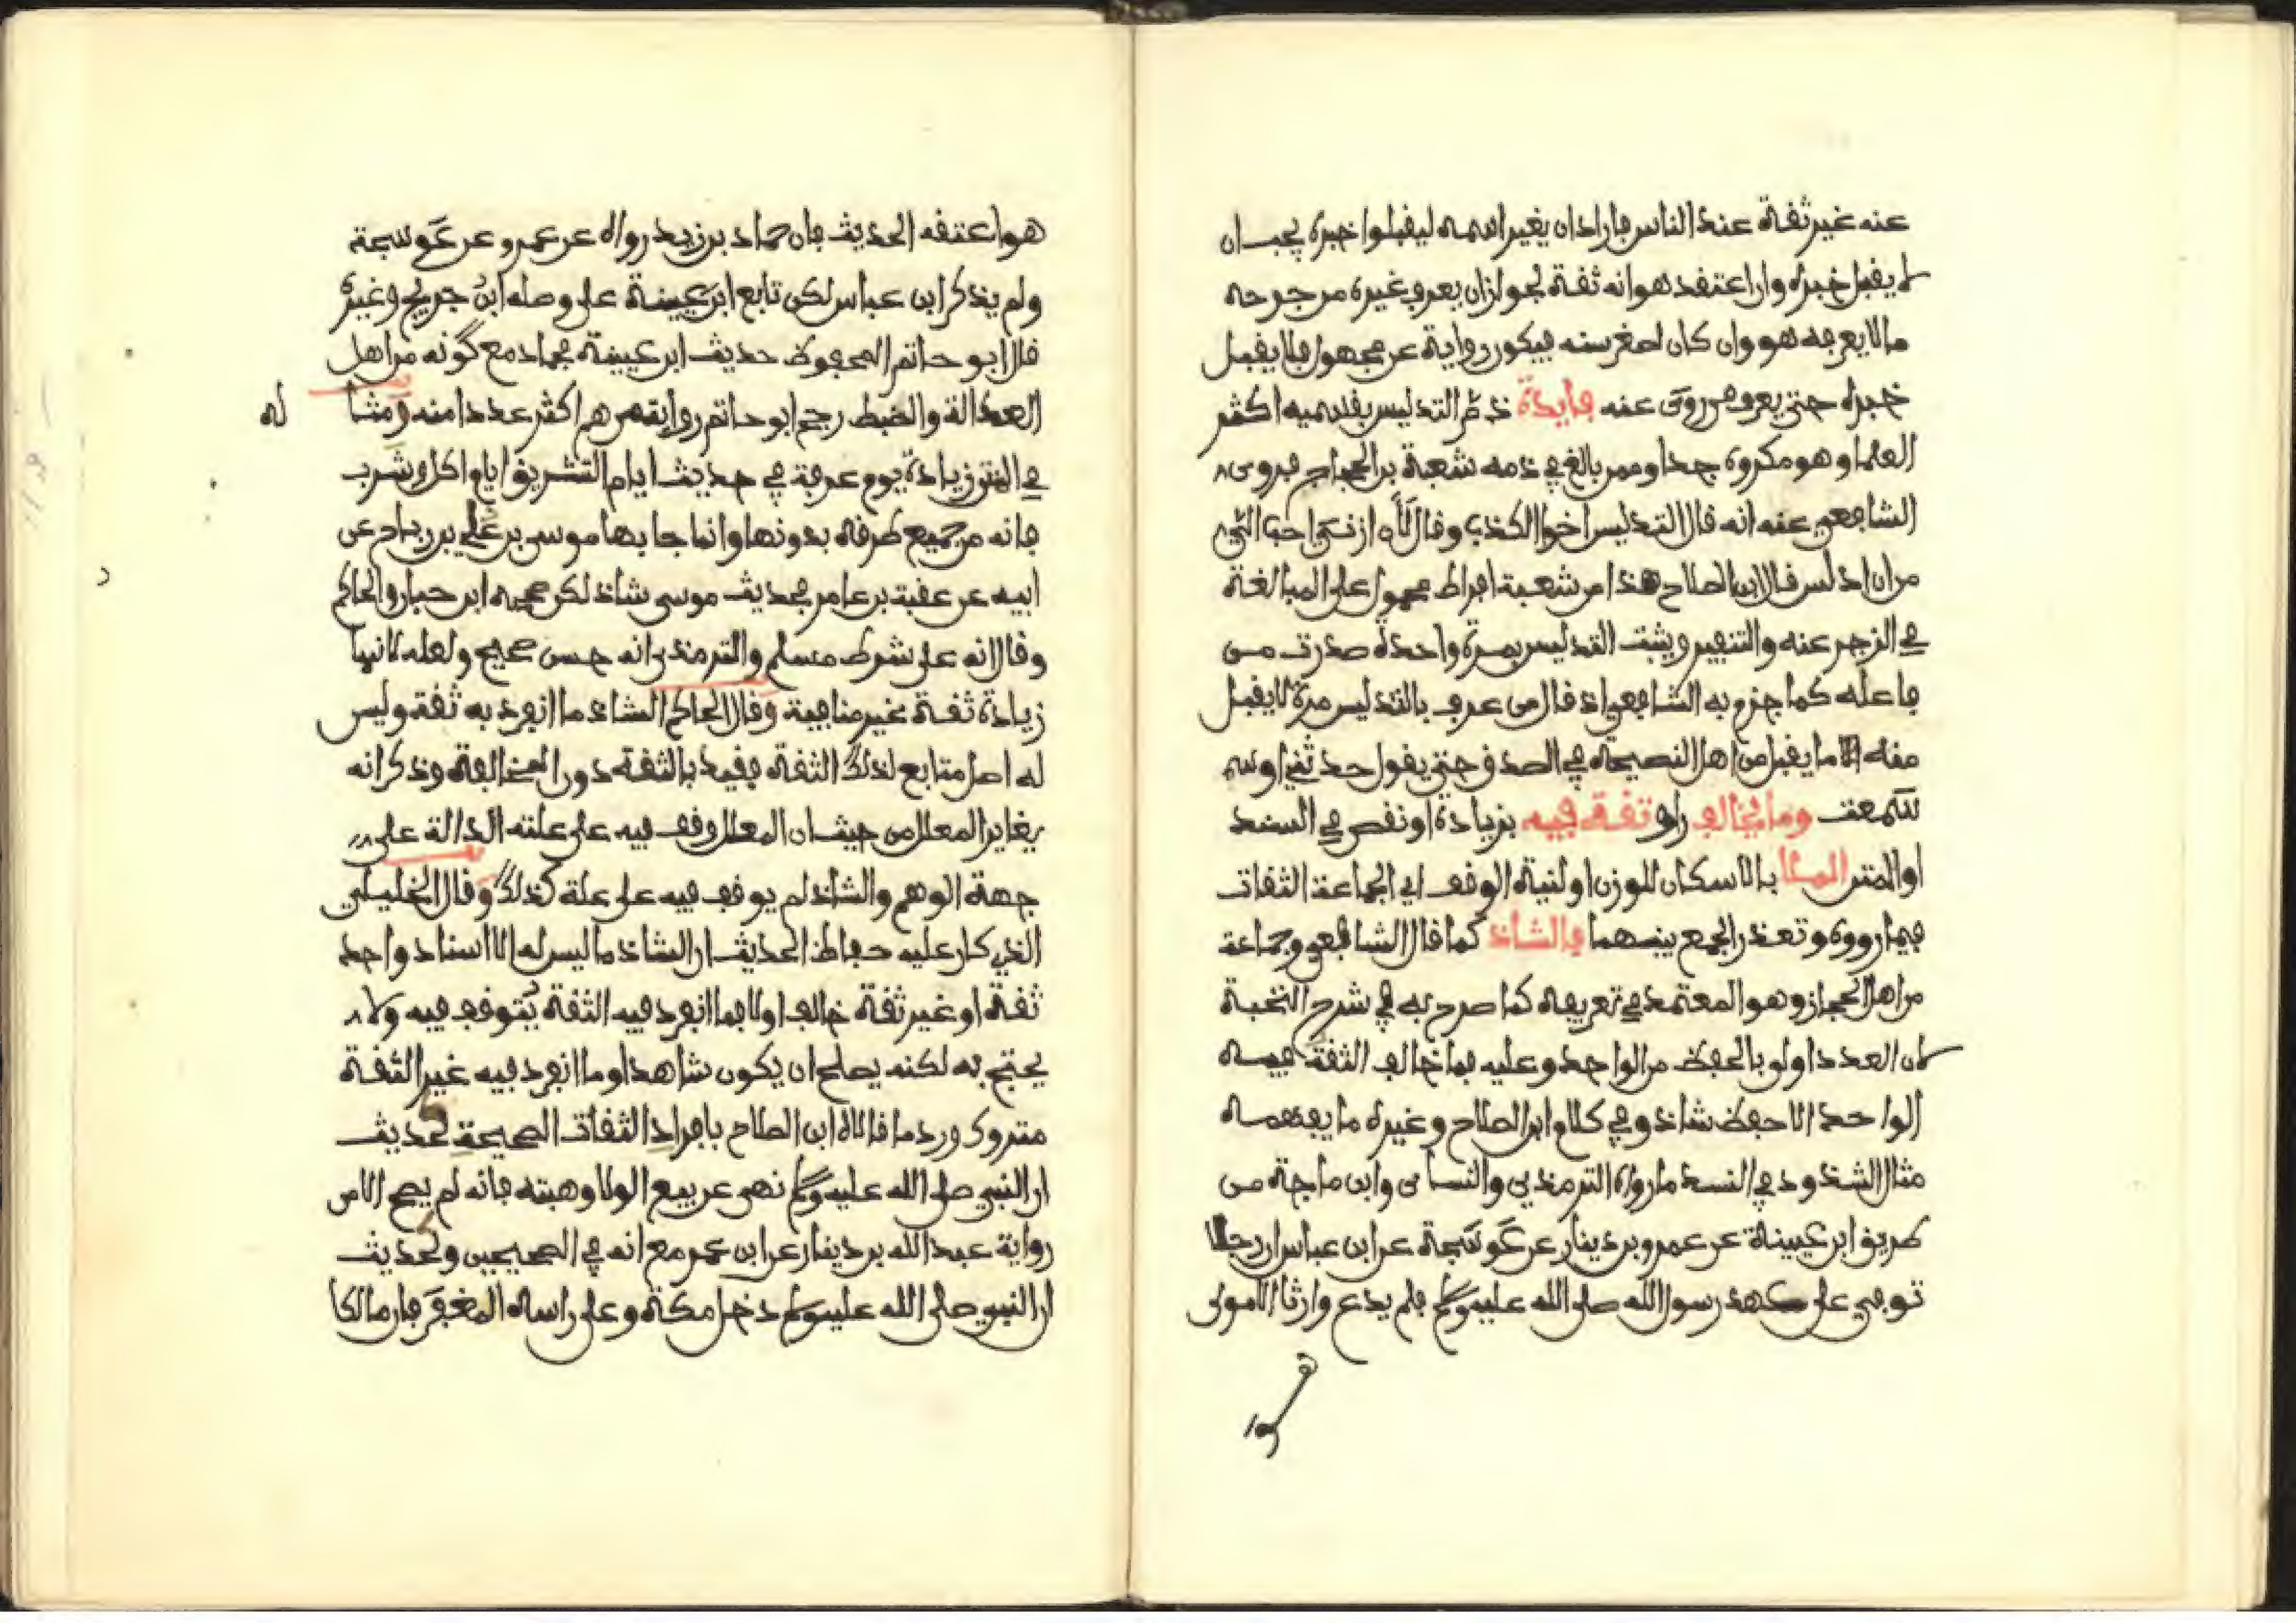 عنه غير ثفة عند الناس فاراد ان يغير اسمه ليفبلوا خبره يجب ان
لا يفبل خبره وان اعتفد هو انه ثفة لجواز ان يعرف غيره من جرحه
مالا يعرفه هو وان كان لصغر سنه فيكون رواية عن مجهول فلا يفبل
خبره حتى يعرف من روى عنه فايدة ذم التدليس بفسميه اكثر
العلما وهو مكروه جدا وممن بالغ في ذمه شعبة بن الحجاج فروى
الشافعي عنه انه فال التدليس اخوا الكذب وفال لأن ازني احب الي
من ان ادلس فال ابن الصلاح هذا من شعبة افراط محمول على المبالغة
في الزجر عنه والتنفير ويثبت التدليس بمرة واحدة صدرت من
فاعله كما جزم به الشافعي اذ فال من عرف بالتدليس مرة لا يفبل
منه الا ما يفبل من اهل النصيحة في الصدق حتى يفول حدثني او سم
سمعت وما يخالف راو ثفة فيه بزيادة او نفص في السند
او المتن الملا بالاسكان للوزن او لنية الوفف اي الجماعة الثفات
فيما رووه وتعذر الجمع بينهما فالشاذ كما فال الشافعي وجماعة
من اهل الحجاز وهو المعتمد في تعريفه كما صرح به في شرح النخبة
لان العدد اولى بالحفظ من الواحد وعليه فما خالف الثفة فيه
الواحد الاحفظ شاذ وفي كلام ابن الصلاح وغيره ما يفهمه
مثال الشذوذ في السند ما رواه الترمذي والنساي وابن ماجة من
طريق ابن عيينة عن عمرو بن دينار عن عوسجة عن ابن عباس ان رجلا
توفي على عهد رسول الله صلى الله عليه وسلم فلم يدع وارثا الا مولى
هو اعتفه الحديث فان حماد بن زيد رواه عن عمرو عن عوسجة
ولم يذكر ابن عباس لكن تابع ابن عيينة على وصله ابن جريج وغيره
فال ابو حاتم المحفوظ حديث ابن عيينة فحماد مع كونه من اهل
العدالة والضبط رجح ابو حاتم رواية من هم اكثر عددا منه ومثا له
في المتن زيادة يوم عرفة في حديث ايام التشريق ايام اكل وشرب
فانه من جميع طرفه بدونها وانما جا بها موسى بن علي بن رباح عن
ابيه عن عفبة بن عامر فحديث موسى شاذ لكن صححه ابن حبان والحاكم
وفال انه على شرط مسلم والترمذي انه حسن صحيح ولعله لانها
زيادة ثفة غير منافية وفال الحاكم الشاذ ما انفرد به ثفة وليس
له اصل متابع لذلك الثفة فيفيد بالثفة دون المخالفة وذكر انه
يغاير المعلل من حيث ان المعلل وفف فيه على علته الدالة على
جهة الوهم والشاذ لم يوفف فيه على علة كذلك وفال الخليلي
الذي كان عليه حفاظ الحديث ان الشاذ ما ليس له الا اسناد واحد
ثفة او غير ثفة خالف اولا فما انفرد فيه الثفة يتوفف فيه ولا
يحتج به لكنه يصلح ان يكون شاهدا وما انفرد فيه غير الثفة
متروك ورد ما فالاه ابن الصلاح بافراد الثفات الصحيحة لحديث
ان النبي صلى الله عليه وسلم نهى عن بيع الولا وهبته فانه لم يصح الا من
رواية عبد الله بن دينار عن ابن عمر مع انه في الصحيحين ولحديث
ان النبي صلى الله عليه وسلم دخل مكة وعلى راسه المغفر فان مالكا